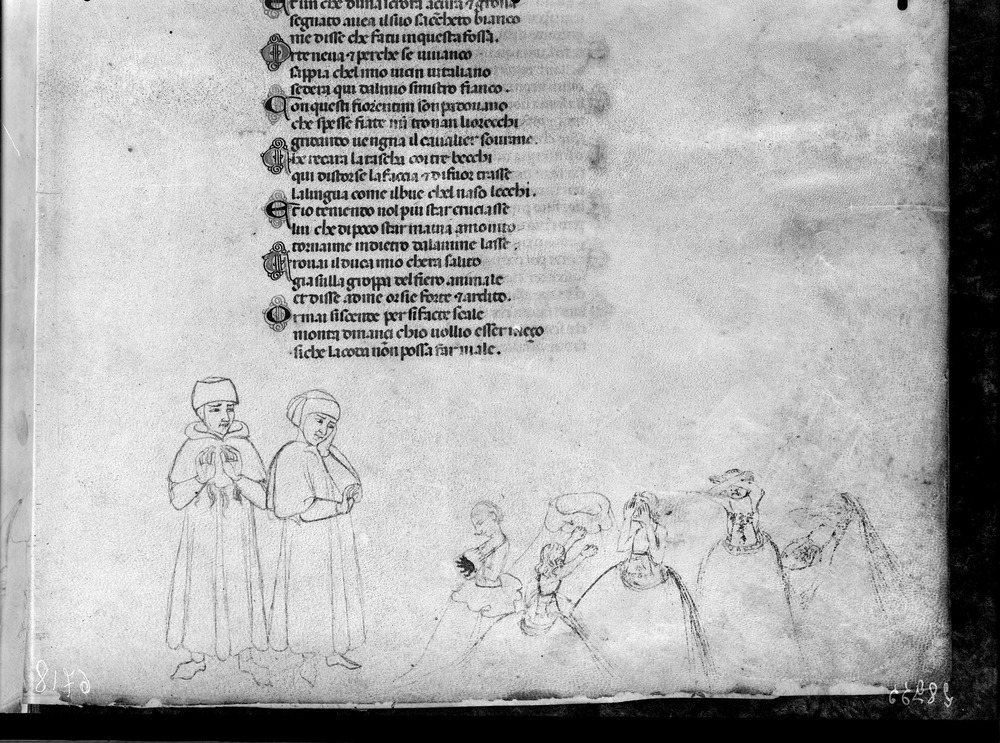 Et un che duna scrofa acura & grossa
segnato auea ilsuo sacchetto bianco
me disse che fatu inquesta fossa.
Orteneua & perche se uiuanco
sappia chelmio uicin uitaliano
sedera qui dalmio sinistro fianco.
Con questi fiorentin son padouano
che spesse fiate mi tronan liorecchi
gridando uengna il caualier sourano.
Che recara latascha contre becchi
qui distorse lafaccia & difuor trasse
lalingua come ilbue chel naso lecchi.
Et io temendo nol piu star cruciasse
lui che dipoco star mauia amonito
tornamne indietro dalanime lasse.
Trouai il duca mio chera salito
gia sulla groppa del fiero animale
et disse adme or sie forte & ardito.
Ormai siscende per sifacte scale
monta dinanci chio uollio esser mezo
siche lacoda non possa far male.
6718